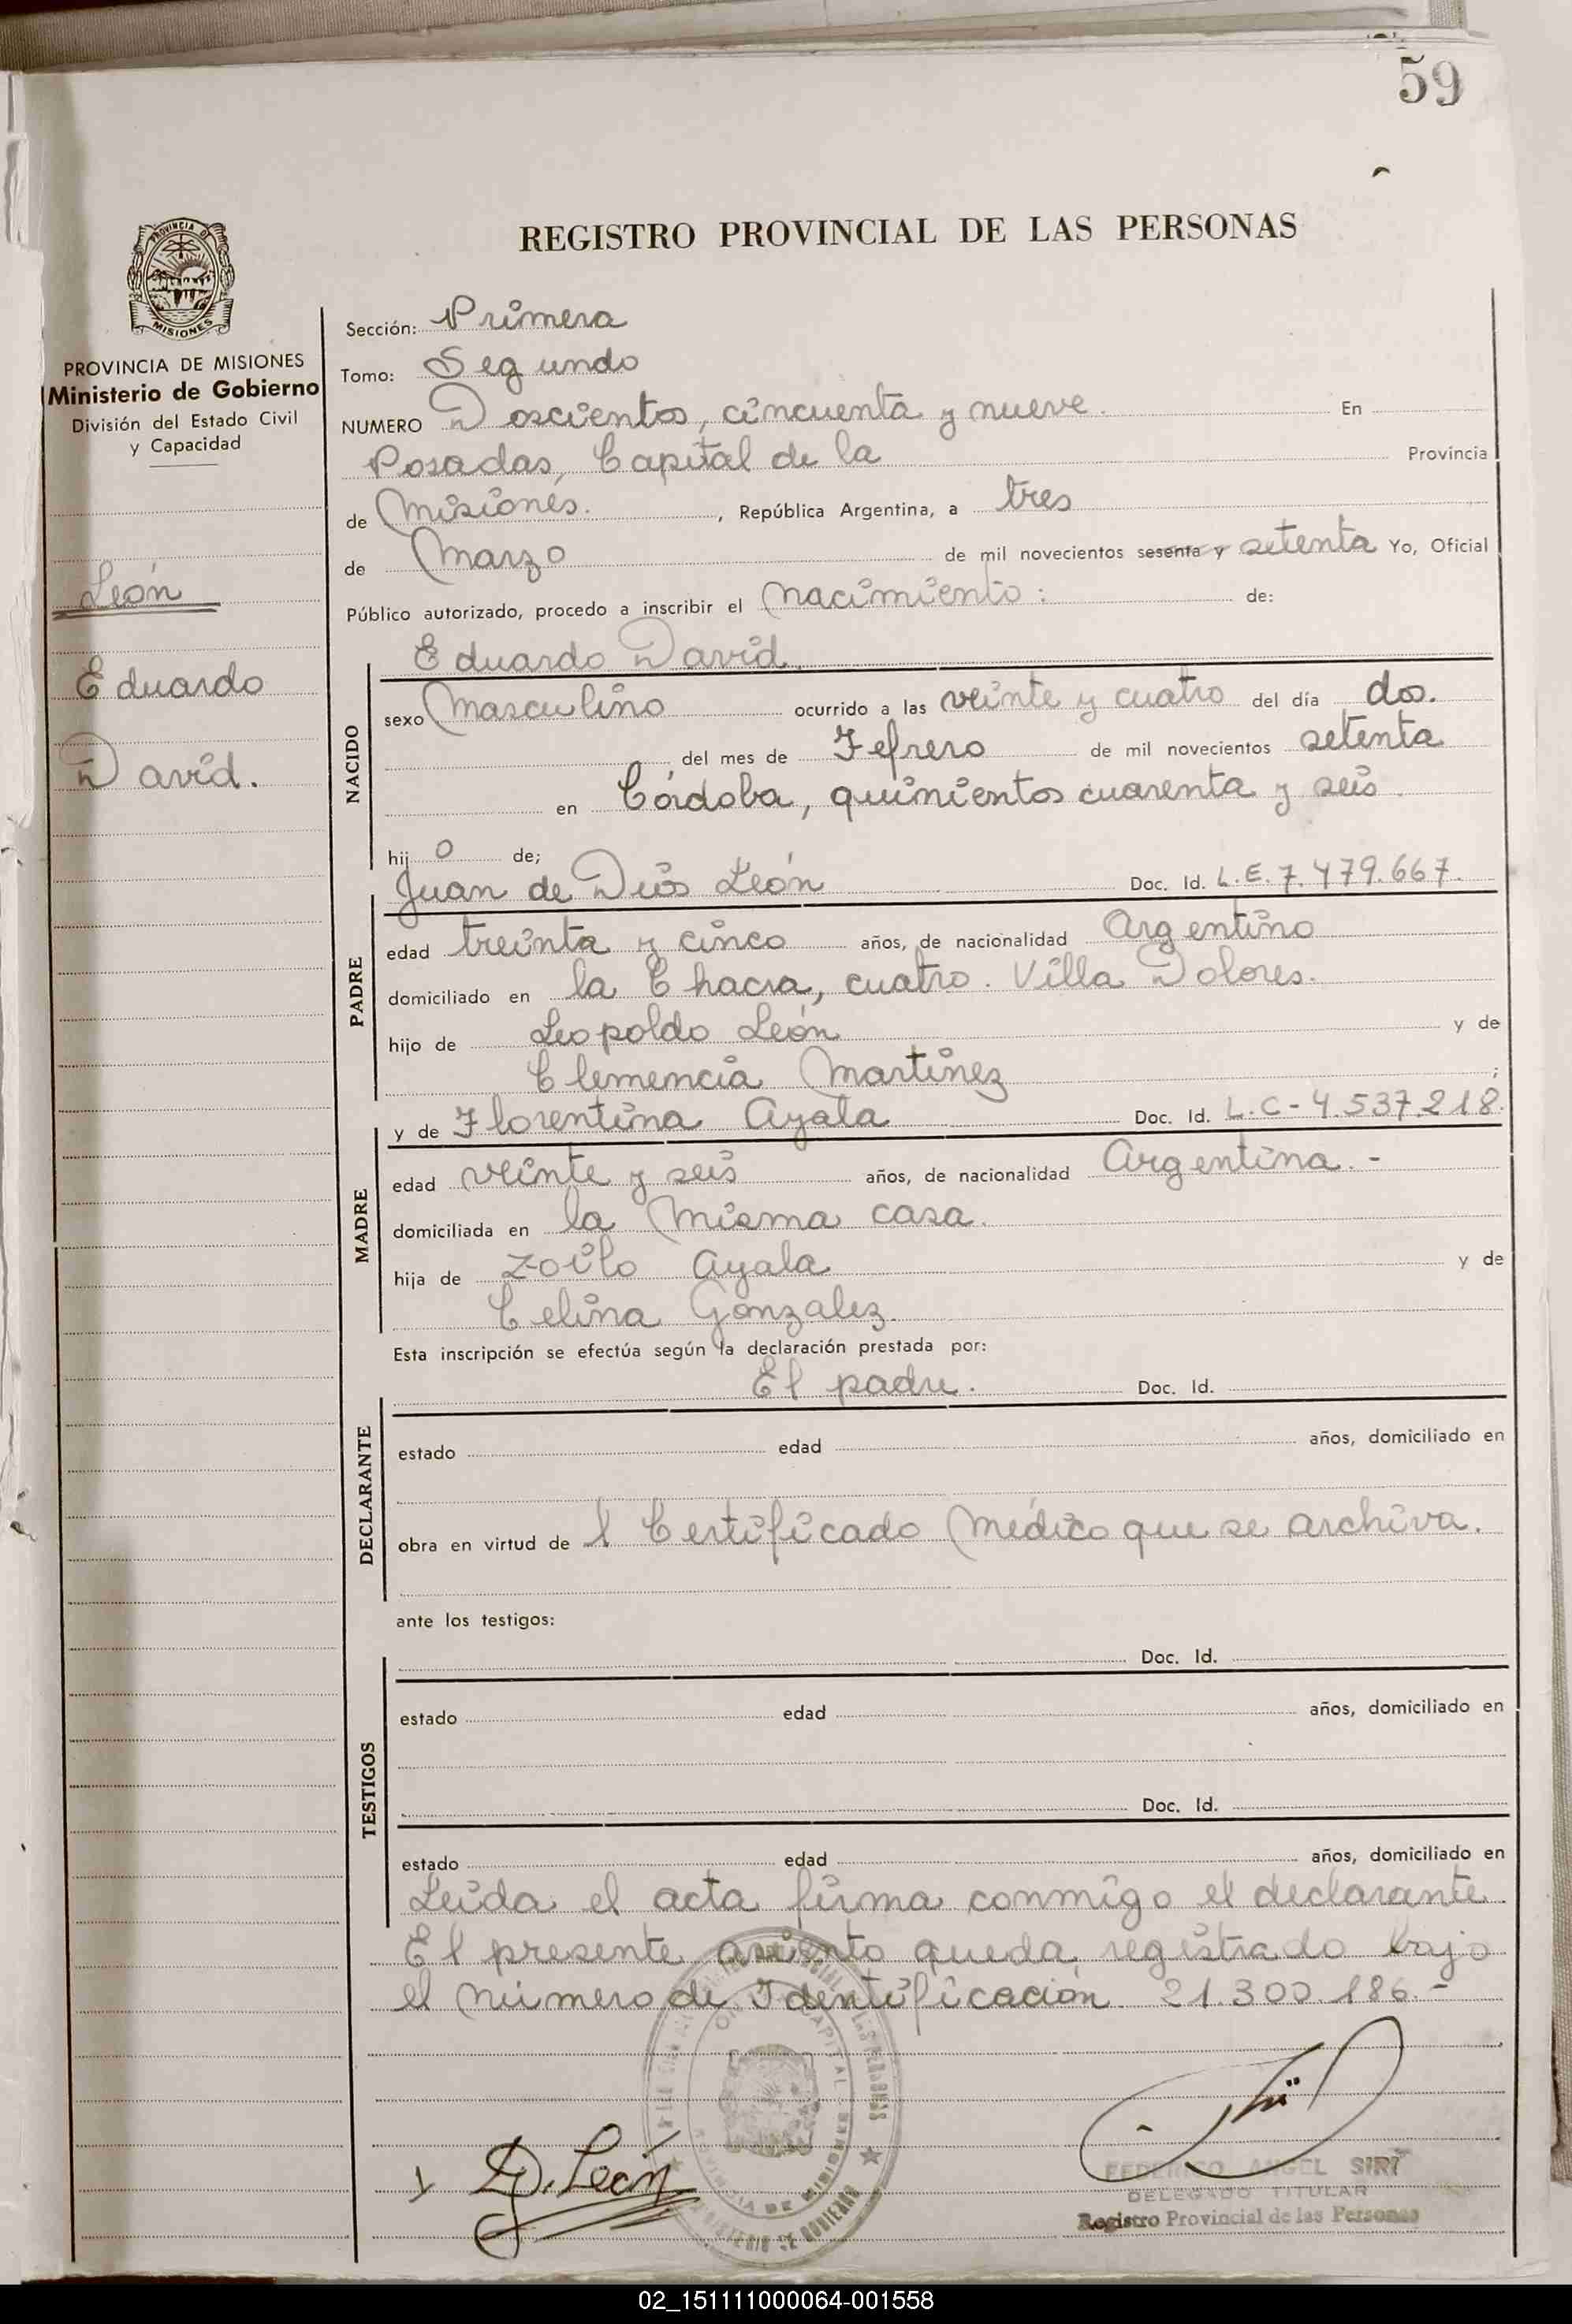 59
REGISTRO PROVINCIAL DE LAS PERSONAS
PROVINCIA DE MISIONES
PROVINCIA DE MISIONES
Ministerio de Gobierno
División del Estado Civil
y Capacidad
León
Eduardo
David.
Sección: Primera
Tomo: Segundo
NUMERO Doscientos, cincuenta y nueve. En
Posadas, Capital de la Provincia
de Misiones. , República Argentina, a tres
de Marzo de mil novecientos sesenta y setenta Yo, Oficial
Público autorizado, procedo a inscribir el nacimiento: de:
Eduardo David.
NACIDO
sexo Masculino ocurrido a las veinte y cuatro del día dos.
del mes de Fefrero de mil novecientos setenta
en Córdoba, quinientos cuarenta y seis.
hij o de;
Juan de Dios León Doc. Id. L.E. 7.479.667.
PADRE
edad treinta y cinco años, de nacionalidad Argentino
domiciliado en la Chacra, cuatro. Villa Dolores.
hijo de Leopoldo León y de
Clemencia Martinez ;
y de Florentina Ayala Doc. Id. L.C-4.537.218.
MADRE
edad veinte y seis años, de nacionalidad Argentina.-
domiciliada en la misma casa.
hija de Zoilo Ayala y de
Celina Gonzalez.
Esta inscripción se efectúa según la declaración prestada por:
El padre. Doc. Id.
DECLARANTE
estado edad años, domiciliado en
obra en virtud de l Certificado Médico que se archiva.
ante los testigos:
Doc. Id.
TESTIGOS
estado edad años, domiciliado en
Doc. Id.
estado edad años, domiciliado en
Leida el acta firma conmigo el declarante
El presente asiento queda registrado bajo
el número de Identificación 21.300.186.-
D. León
FEDERICO ANGEL SIRI
DELEGADO TITULAR
Registro Provincial de las Personas
02_151111000064-001558